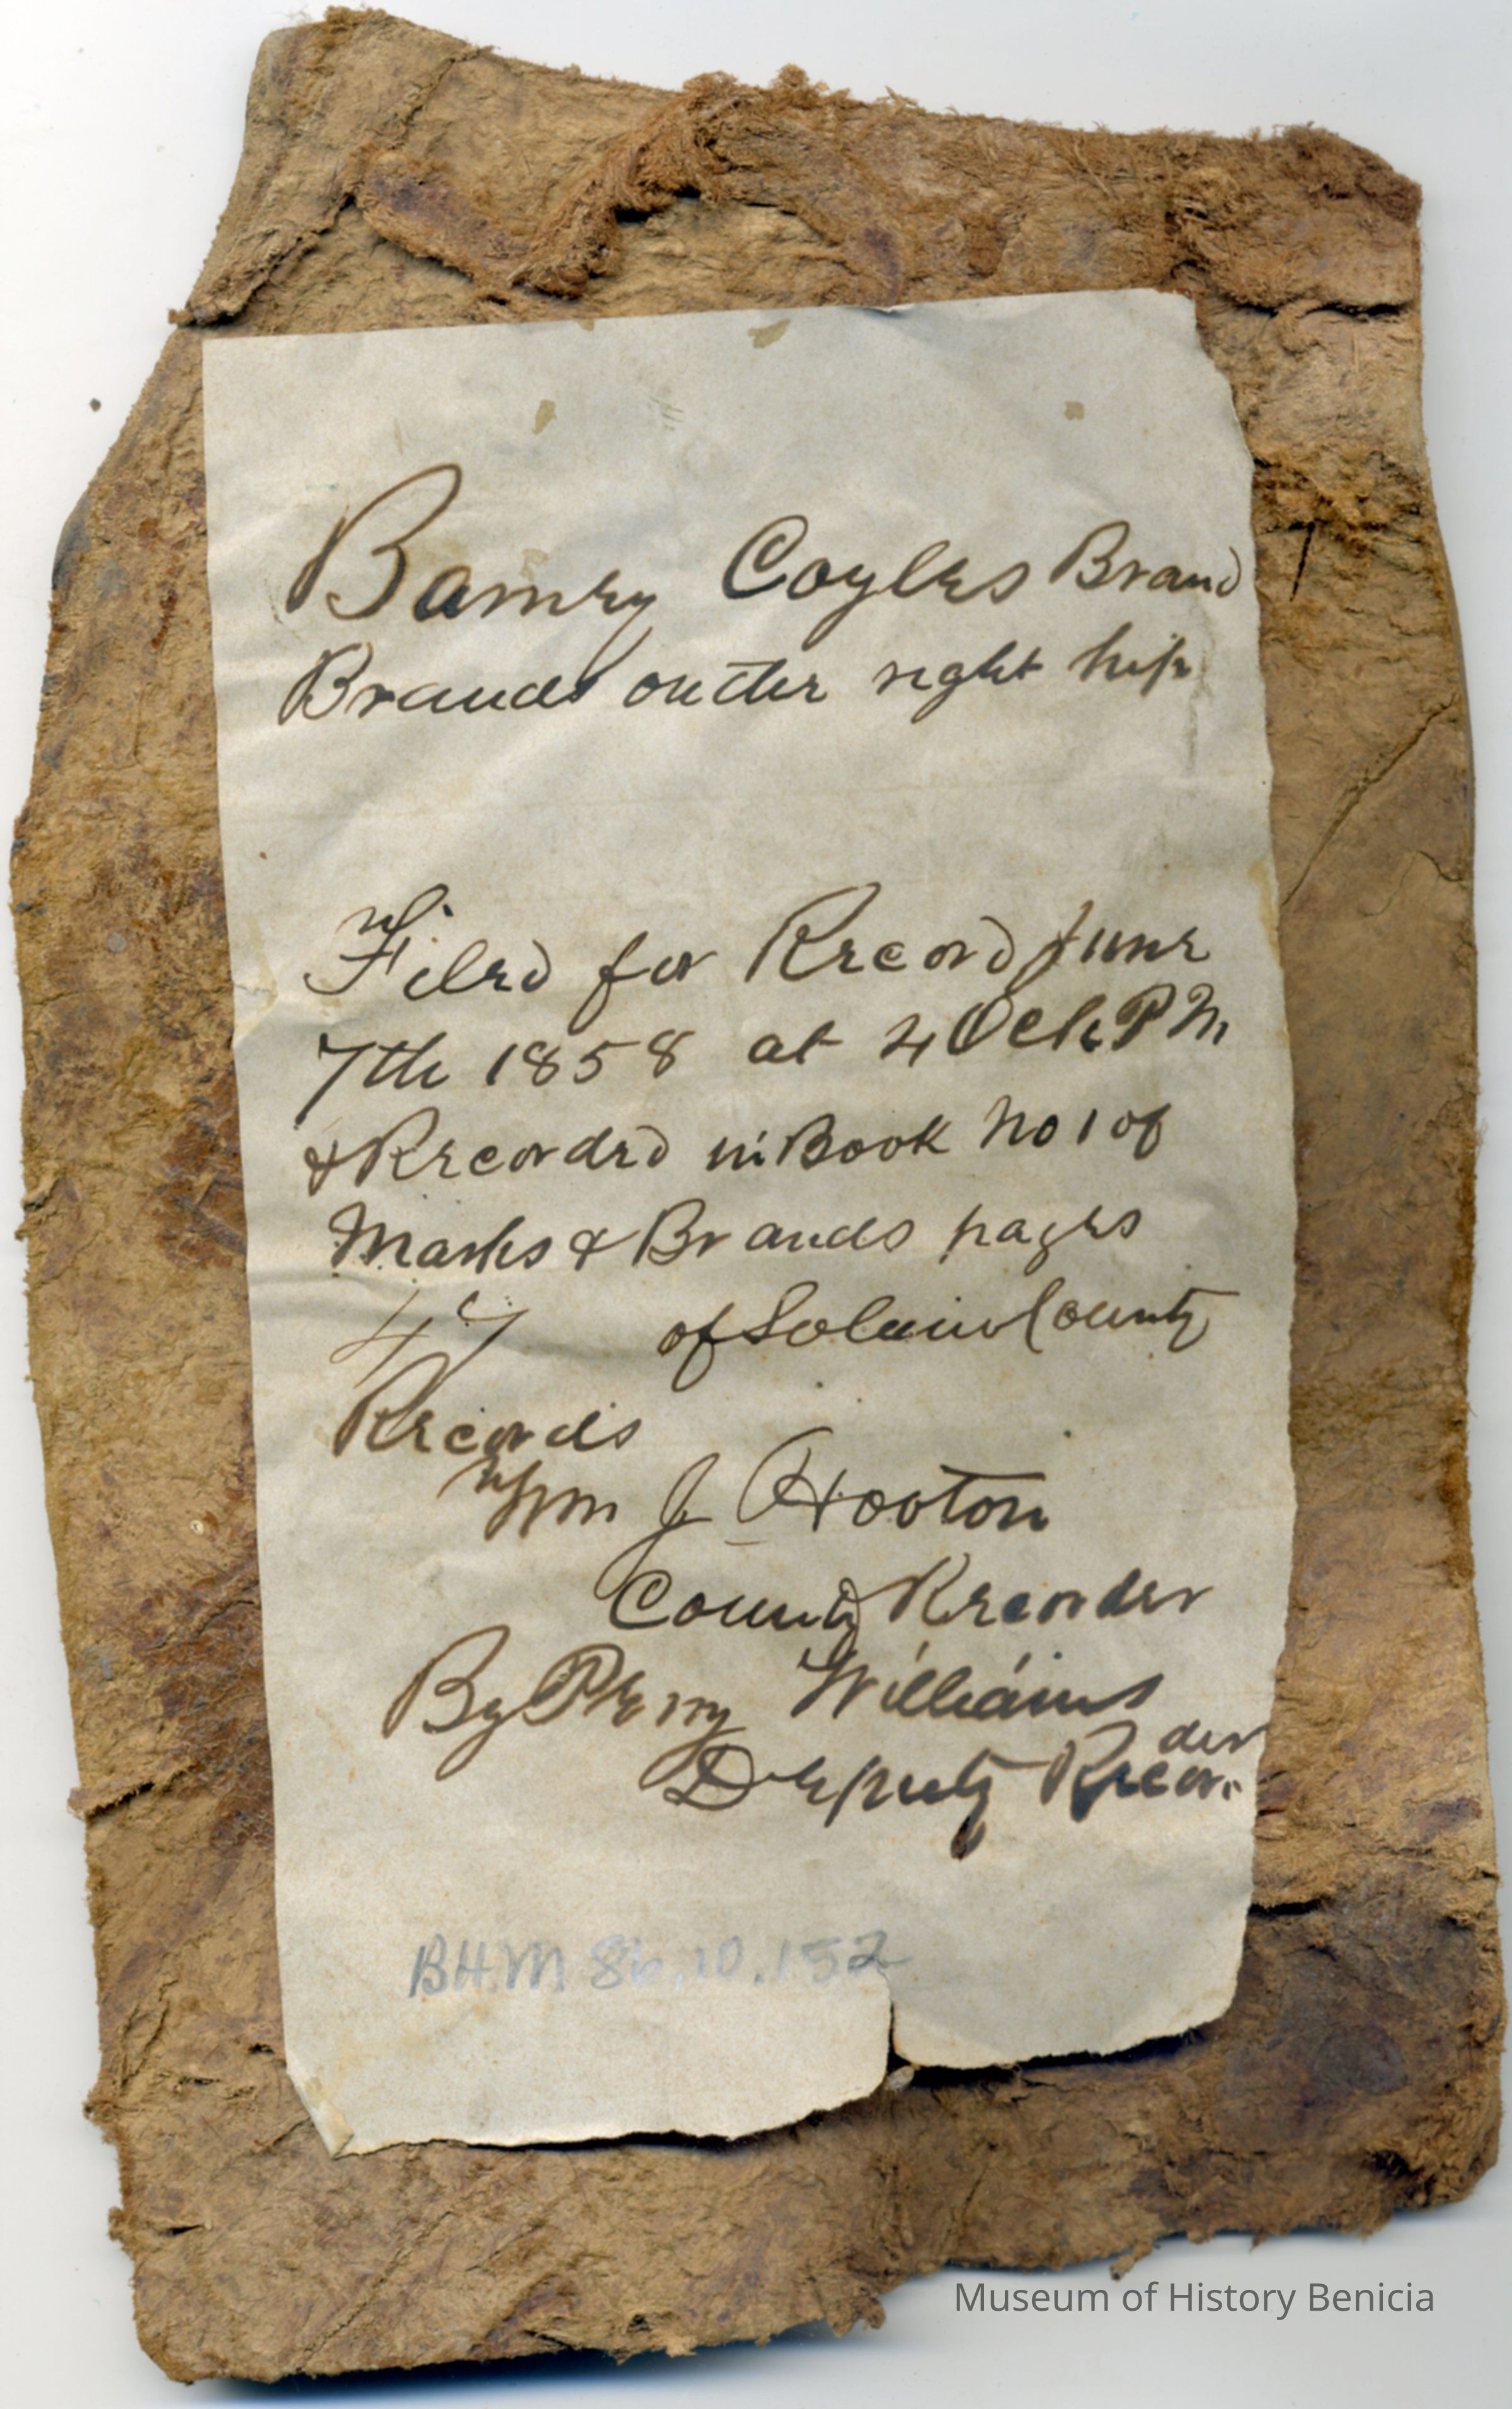 Barney Coyles Brand
Brands on the right hip
Filed for Record June
7th 1858 at 4 Oclk PM
& Recorded in Book No 1 of
Marks & Brands pages
47 of Solano County
Records
Wm J Hooton
County Recorder
By Perry Williams
Deputy Recor
der
BHM 86.10.152
Museum of History Benicia